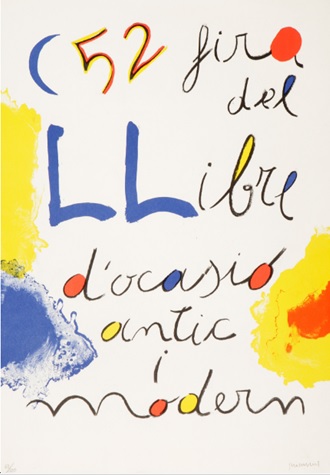 (52 fira
del
LLibre
d'ocasió
antic
i
modern